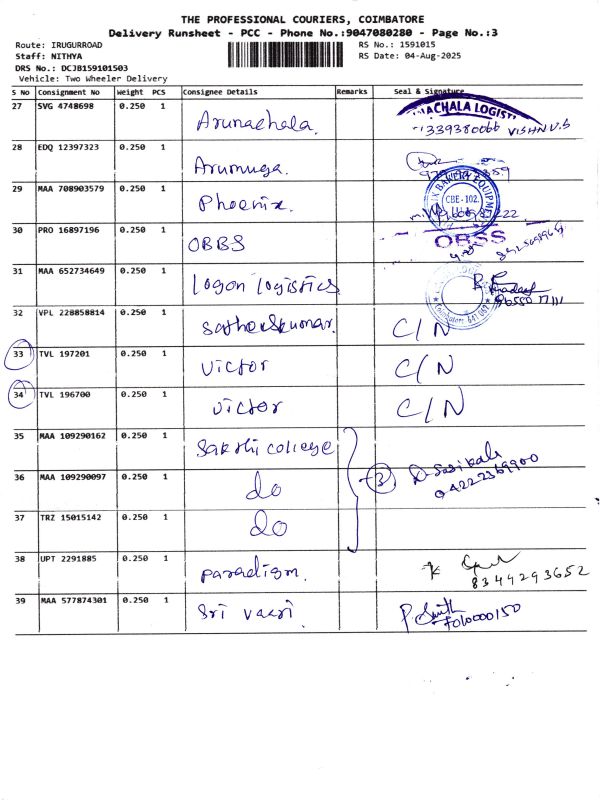 THE PROFESSIONAL COURIERS, COIMBATORE
Delivery Runsheet - PCC - Phone No.:9047080280 - Page No.:3
Route: IRUGURROAD RS No.: 1591015
Staff: NITHYA RS Date: 04-Aug-2025
DRS No.: DCJB159101503
Vehicle: Two Wheeler Delivery
S No Consignment No Weight PCS Consignee Details Remarks Seal & Signature
27 SVG 4748698 0.250 1 Arunachala. ACHALA LOGIST
9339380066 VISHNU.S
28 EDQ 12397323 0.250 1 Arumuga.
29 MAA 708903579 0.250 1 Phoenix. CBE-102.
30 PRO 16897196 0.250 1 OBBS OBSS
31 MAA 652734649 0.250 1 Logon logistics
32 VPL 228858814 0.250 1 Satheeskumar. C/N
33 TVL 197201 0.250 1 victor C/N
34 TVL 196700 0.250 1 victor C/N
35 MAA 109290162 0.250 1 Sakthi college
36 MAA 109290097 0.250 1 do 3 D. Sasikala
04222369900
37 TRZ 15015142 0.250 1 do
38 UPT 2291885 0.250 1 paradigm.
8344293652
39 MAA 577874301 0.250 1 Sri vaari P. Smith
7010000150